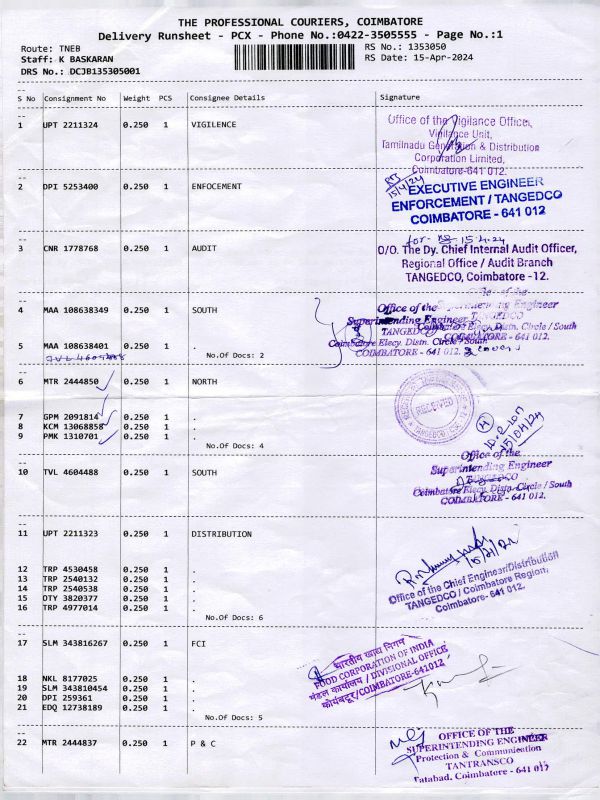 THE PROFESSIONAL COURIERS, COIMBATORE
Delivery Runsheet - PCX - Phone No.:0422-3505555 - Page No.:1
Route: TNEB
RS No.: 1353050
Staff: K BASKARAN
RS Date: 15-Apr-2024
DRS No.: DCJB135305001
S No Consignment No Weight PCS Consignee Details Signature
1 UPT 2211324 0.250 1 VIGILENCE
Office of the Vigilance Officer,
Vigilance Unit,
Tamilnadu Generation & Distribution
Corporation Limited,
Coimbatore-641 012.
2 DPI 5253400 0.250 1 ENFOCEMENT
15/4/24
EXECUTIVE ENGINEER
ENFORCEMENT / TANGEDCO
COIMBATORE - 641 012
3 CNR 1778768 0.250 1 AUDIT
for- 15.4.24
O/O. The Dy. Chief Internal Audit Officer,
Regional Office / Audit Branch
TANGEDCO, Coimbatore -12.
4 MAA 108638349 0.250 1 SOUTH
Office of the
Superintending Engineer
TANGEDCO
Coimbatore Elecy. Distn. Circle / South
COIMBATORE - 641 012.
Office of the
Superintending Engineer
TANGEDCO
Coimbatore Elecy. Distn. Circle / South
COIMBATORE - 641 012.
5 MAA 108638401 0.250 1
No.Of Docs: 2
6 MTR 2444850 0.250 1 NORTH
RECEIVED
7 GPM 2091814 0.250 1 .
8 KCM 13068858 0.250 1 .
9 PMK 1310701 0.250 1 .
No.Of Docs: 4
4
15/04/24
10 TVL 4604488 0.250 1 SOUTH
Office of the
Superintending Engineer
TANGEDCO
Coimbatore Elecy. Distn. Circle / South
COIMBATORE - 641 012.
11 UPT 2211323 0.250 1 DISTRIBUTION
15/4/24
Office of the Chief Engineer/Distribution
TANGEDCO / Coimbatore Region,
Coimbatore- 641 012.
12 TRP 4530458 0.250 1 .
13 TRP 2540132 0.250 1 .
14 TRP 2540538 0.250 1 .
15 DTY 3820377 0.250 1 .
16 TRP 4977014 0.250 1 .
No.Of Docs: 6
17 SLM 343816267 0.250 1 FCI
भारतीय खाद्य निगम
FOOD CORPORATION OF INDIA
मंडल कार्यालय / DIVISIONAL OFFICE
कोयंबटूर/COIMBATORE-641012
18 NKL 8177025 0.250 1 .
19 SLM 343810454 0.250 1 .
20 DPI 259361 0.250 1 .
21 EDQ 12738189 0.250 1 .
No.Of Docs: 5
22 MTR 2444837 0.250 1 P & C
OFFICE OF THE
SUPERINTENDING ENGINEER
Protection & Communication
TANTRANSCO
Tatabad, Coimbatore - 641 012